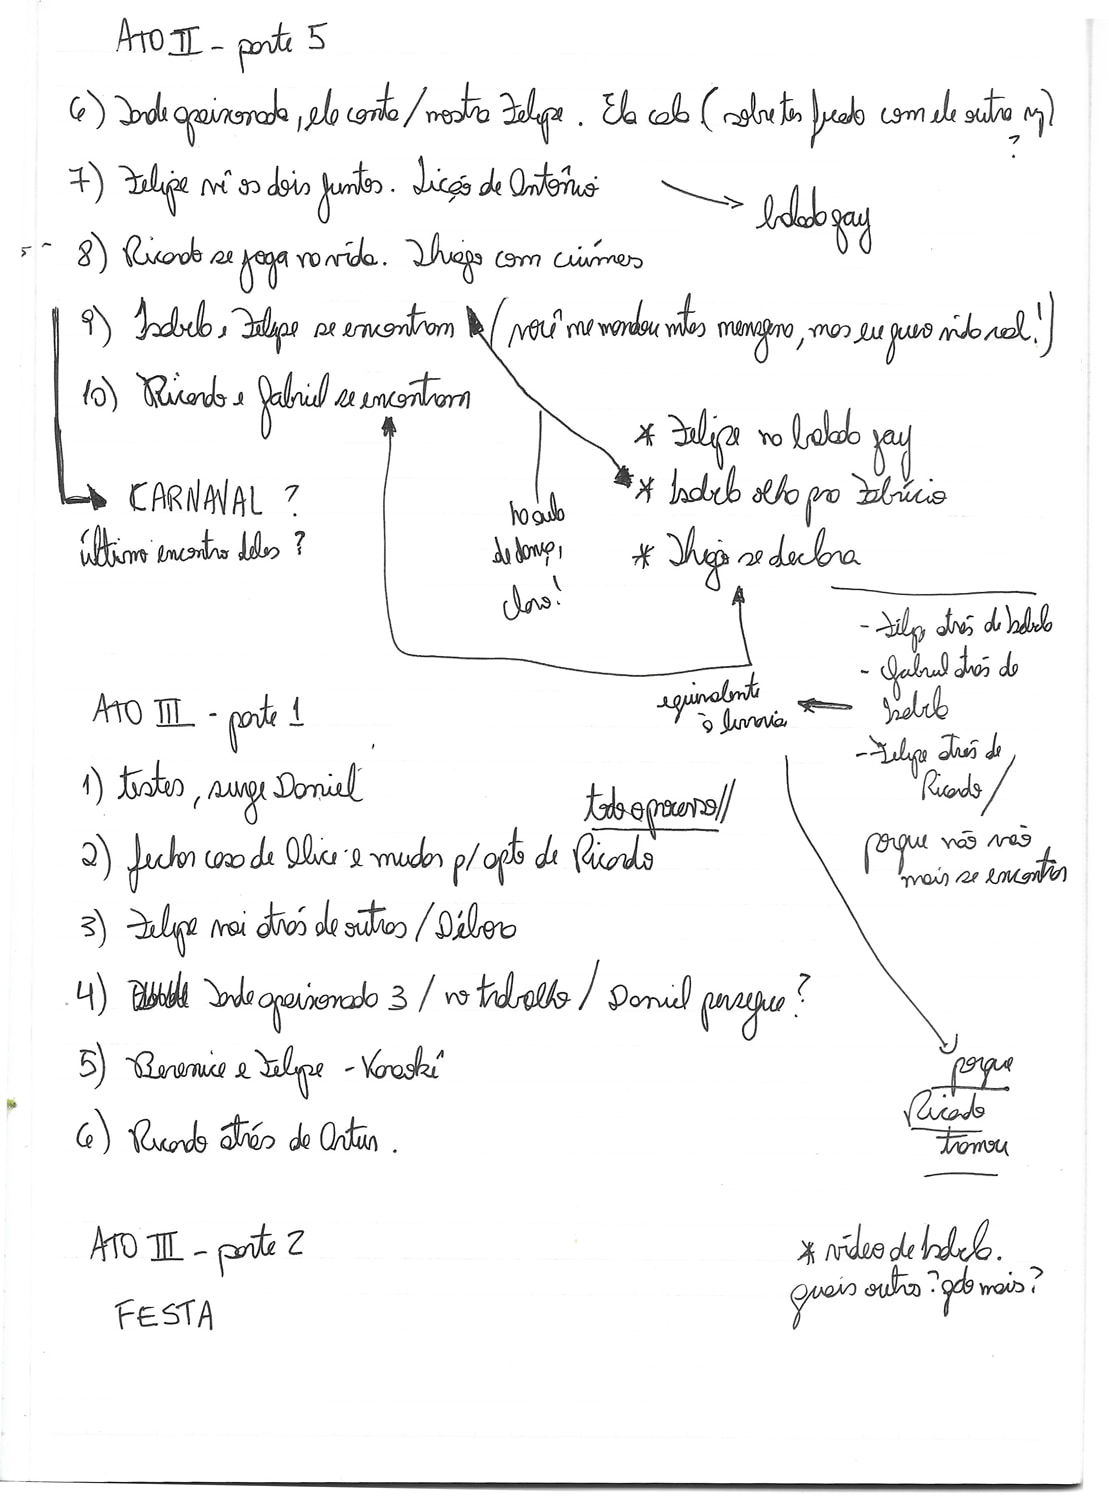 ATO II - parte 5
6) Jade apaixonada, ela conta / mostra Felipe. Ela cala (sobre ter ficado com ele outra vez)
?
7) Felipe vê os dois juntos. Lição de Antônio
balada gay
8) Ricardo se joga na vida. Thiago com ciúmes
9) Isabela e Felipe se encontram (você me mandou mtas mensagens, mas eu quero vida real!)
10) Ricardo e Gabriel se encontram
* Felipe na balada gay
CARNAVAL ?
* Isabela olha pro Fabrício
último encontro deles ?
na aula
de dança,
claro!
* Thiago se declara
- Felipe atrás de Isabela
- Gabriel atrás de
Isabela
- Felipe atrás de
Ricardo /
porque não vão
mais se encontrar
equivalente
à livraria
ATO III - parte 1
1) testes, surge Daniel
todo o processo //
2) fechar caso de Alice e mudar p/ apto de Ricardo
3) Felipe vai atrás de outras / Débora
4) Jade apaixonada 3 / no trabalho / Daniel persegue ?
5) Berenice e Felipe - Karaokê
6) Ricardo atrás de Artur.
porque
Ricardo
tramou
ATO III - parte 2
FESTA
* vídeo de Isabela.
quais outros? qdo mais?